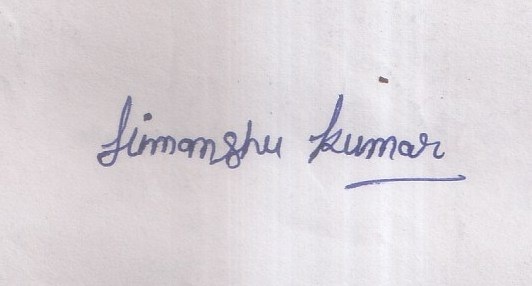 Himanshu Kumar